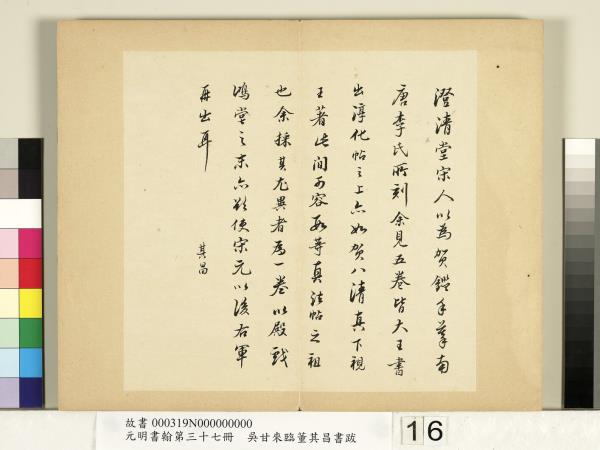 澄清堂宋人以為賀鑑手摹南
唐李氏所刻余見五卷皆大王書
出淳化帖之上亦如賀八清真下視
王著此間可容數等真法帖之祖
也余採其尤異者為一卷以殿戲
鴻堂之末亦欲使宋元以後右軍
再出耳
其昌
故書 000319N000000000
元明書翰第三十七冊 吳甘來臨董其昌書跋
16